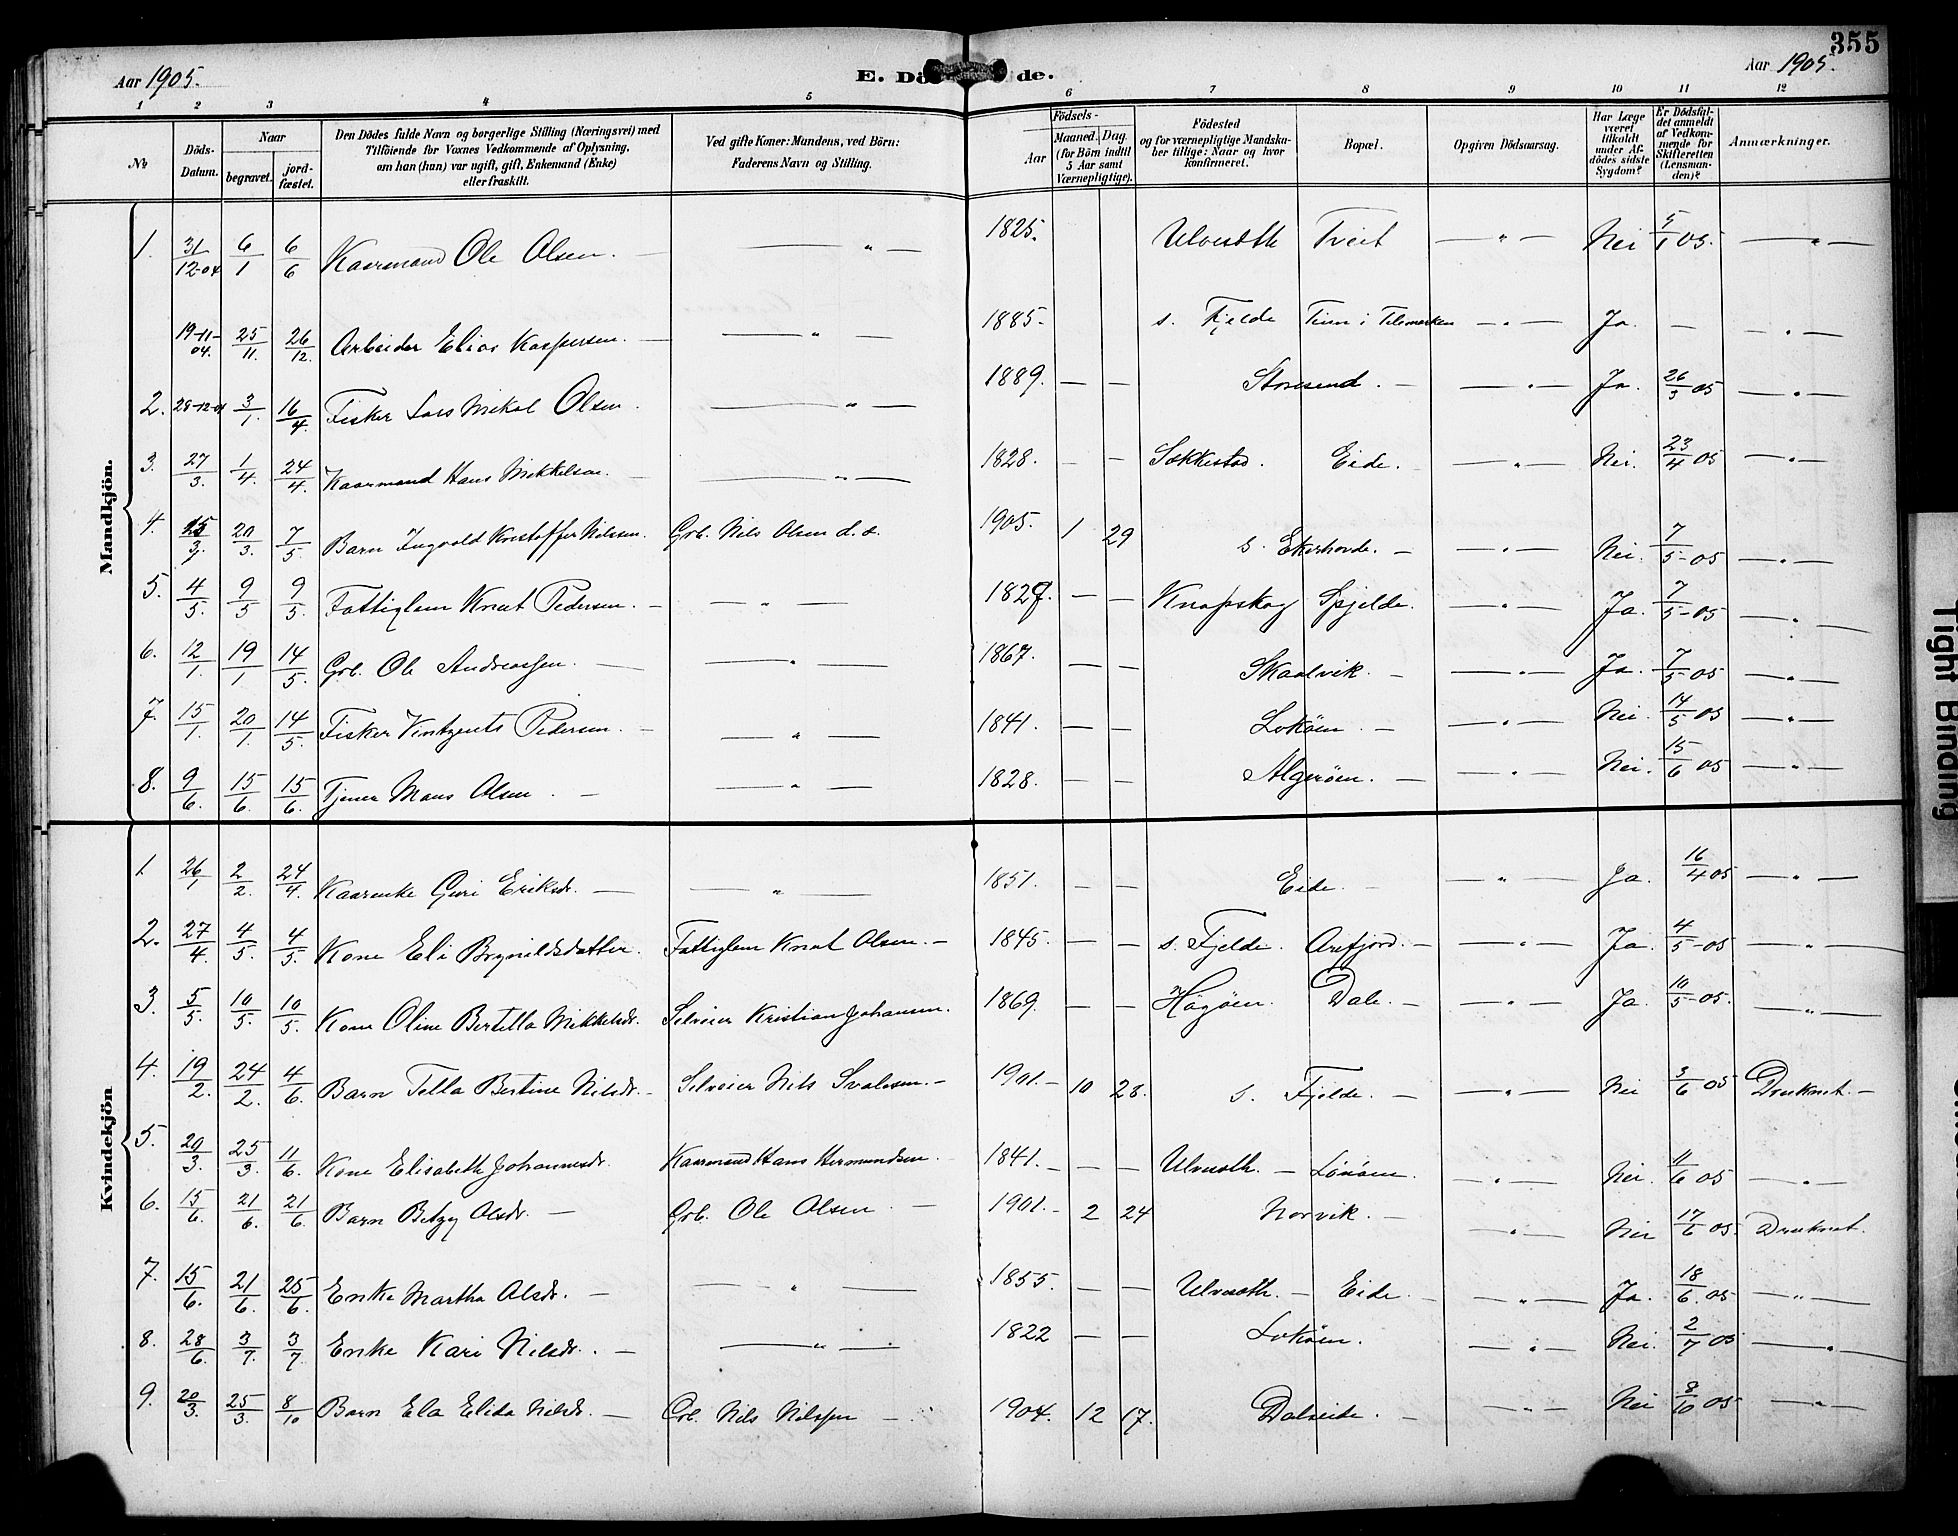 355
Aar 1905.
E. Dö de.
Aar 1905.
1 2 3 4 5 6 7 8 9 10 11 12
No.
Döds-Datum.
Naar
begravet.
jord-fæstet.
Den Dödes fulde Navn og borgerlige Stilling (Næringsvei) med
Tilföiende for Voxnes Vedkommende af Oplysning,
om han (hun) var ugift, gift, Enkemand (Enke)
eller fraskilt.
Ved gifte Koner: Mandens, ved Börn:
Faderens Navn og Stilling.
Födsels-
Aar
Maaned. Dag
(for Börn indtil
5 Aar samt
Værnepligtige).
Födested
og for værnepligtige Mandska-
ber tillige: Naar og hvor
konfirmeret.
Bopæl.
Opgiven Dödsaarsag.
Har Læge
været
tilkaldt
under Af-
dödes sidste
Sygdom?
Er Dödsfal-
det anmeldt
af Vedkom-
mende for
Skifteretten
(Lensman-
den)?
Anmærkninger.
Mandkjön.
1. 31/12-04 6/1 6/6 Kaarmand Ole Olsen. — " — 1825. Ulvesæth Tveit — " — Nei 5/1 05. — " —
19-11-04. 25/11. 26/12. Arbeider Elias Kaspersen. — " — 1885. s. Fjelde Tinn i Telemarken — " — Ja. — — " —
2. 28-12-04 3/1. 16/4. Fisker Lars Mikal Olsen. — " — 1889. — — Storesund. — — " — Ja. 26/3 05 — " —
3. 27/3. 1/4. 24/4. Kaarmand Hans Mikkelsen. — " — 1828. — — Sokkestad. Eide. — " — Nei. 23/4 05 — " —
4. 15/3. 20/3. 7/5. Barn Ingvald Kristoffer Nilssen. Grb. Nils Olsen d. s. 1905. 1 29 s. Ekerhovde. — — " — Nei. 7/5-05 — " —
5. 4/5. 9/5 9/5. Fattiglem Knut Pedersen. — — " — 1827. — — Knapskog Spjelde. — " — Ja. 7/5-05 — " —
6. 12/1 19/1 14/5. Grb. Ole Andreassen. — — " — 1867. — — Skaalvik. — — " — Ja. 7/5-05 — " —
7. 15/1. 20/1. 14/5. Fisker Vintzents Pedersen. — — " — 1841. — — Lokøen. — — " — Nei. 14/5 05 — " —
8. 9/6. 15/6. 15/6. Tjener Mons Olsen. — — " — 1828. — — Algerøen. — — " — Nei. 15/6 05 — " —
Kvindekjön
1 26/1 2/2. 24/4. Kaarenke Guri Eriksdr. — — " — 1851. — — Eide. — — " — Ja. 16/4 05 — " —
2. 27/4. 4/5. 4/5. Kone Eli Brynildsdatter. Fattiglem Knut Olsen. — 1845. — — s. Fjelde. Arefjord. — — " — Ja. 4/5-05 — " —
3. 5/5. 10/5. 10/5. Kone Oline Bertilla Mikkelsdr. Selveier Kristian Johansen. 1869. — — Högøen. Dale. — — " — Ja. 10/5-05. — " —
4. 19/2. 24/2. 4/6. Barn Tella Bertine Nilsdr. — Selveier Nils Svalesen. — 1901. — 10 28. s. Fjelde. — — " — Nei 3/6 05 Druknet. —
5. 20/3. 25/3. 11/6. Kone Elisabeth Johannesdr. Kaarmand Hans Hermundsen. — 1841. — — — Ulvesæth. — — " — Nei. 11/6 05 — " —
6. 15/6. 21/6. 21/6. Barn Betzy Olsdr. — Grb. Ole Olsen. — 1901. — 2 24 Norvik. — — " — Nei 17/6 05. Druknet.
7. 15/6. 21/6. 25/6. Enke Martha Olsdr. — — " — 1855. — — Ulvesæth. — Eide. — — " — Ja. 18/6. 05 — " —
8. 28/6. 3/7. 3/7. Enke Kari Nilsdr. — — " — 1822 — — Lokøen. — " — Nei. 2/7 05 — " —
9. 20/3. 25/3. 8/10 Barn Ela Elida Nilsdr. — Grb. Nils Nilssen — 1904. 12 17. Dalseide. — — " — Nei 8/10 05 — " —
Tight Binding